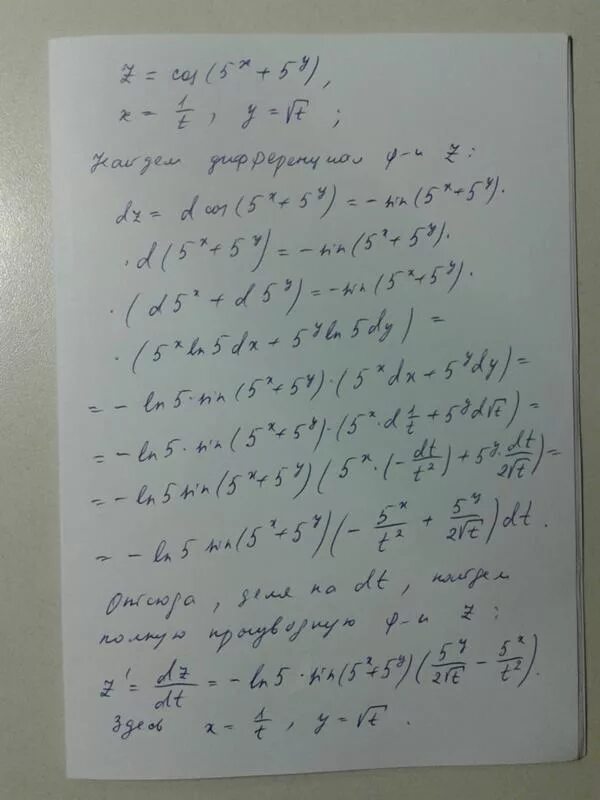 z = cos(5^x + 5^y),
x = 1/t, y = √t;
Найдем дифференциал ф-и z:
dz = d cos(5^x + 5^y) = -sin(5^x + 5^y)·
·d(5^x + 5^y) = -sin(5^x + 5^y)·
·(d5^x + d5^y) = -sin(5^x + 5^y)·
·(5^x ln5 dx + 5^y ln5 dy) =
= -ln5·sin(5^x + 5^y)·(5^x dx + 5^y dy) =
= -ln5·sin(5^x + 5^y)·(5^x·d 1/t + 5^y d√t) =
= -ln5 sin(5^x + 5^y)(5^x·(-dt/t^2) + 5^y·dt/(2√t)) =
= -ln5 sin(5^x + 5^y)(-5^x/t^2 + 5^y/(2√t))dt.
Отсюда, деля на dt, найдем
полную производную ф-и z:
z' = dz/dt = -ln5·sin(5^x + 5^y)(5^y/(2√t) - 5^x/t^2).
Здесь x = 1/t, y = √t.